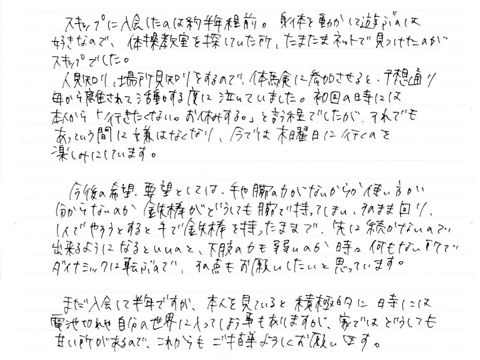 スキップに入会したのは約半年程前。身体を動かして遊ぶのは
好きなので、体操教室を探していた所、たまたまネットで見つけたのが
スキップでした。
人見知り、場所見知りをするので、体験に参加させると、予想通り
母から離されて活動する度に泣いていました。初回の日時には
本人から「行きたくない。お休みする。」と言う程でしたが、それでも
あっという間に嫌はなくなり、今では木曜日に行くのを
楽しみにしています。
今後の希望、要望としては、手や腕の力がないからか使い方が
分からないのか鉄棒がどうしても腕で持ってしまい、そのまま回り、
1人でやろうとすると手で鉄棒を持ったままで、先に続かないので
出来るようになるといいのと、下肢の力も弱いのか時々何もない所で
ダイナミックに転ぶので、その点もお願いしたいと思っています。
まだ入会して半年ですが、本人を見ていると積極的に、日時には
電池切れや自分の世界に入ってしまう事もありますが、家ではどうしても
甘い所があるので、これからもご指導よろしくお願いします。